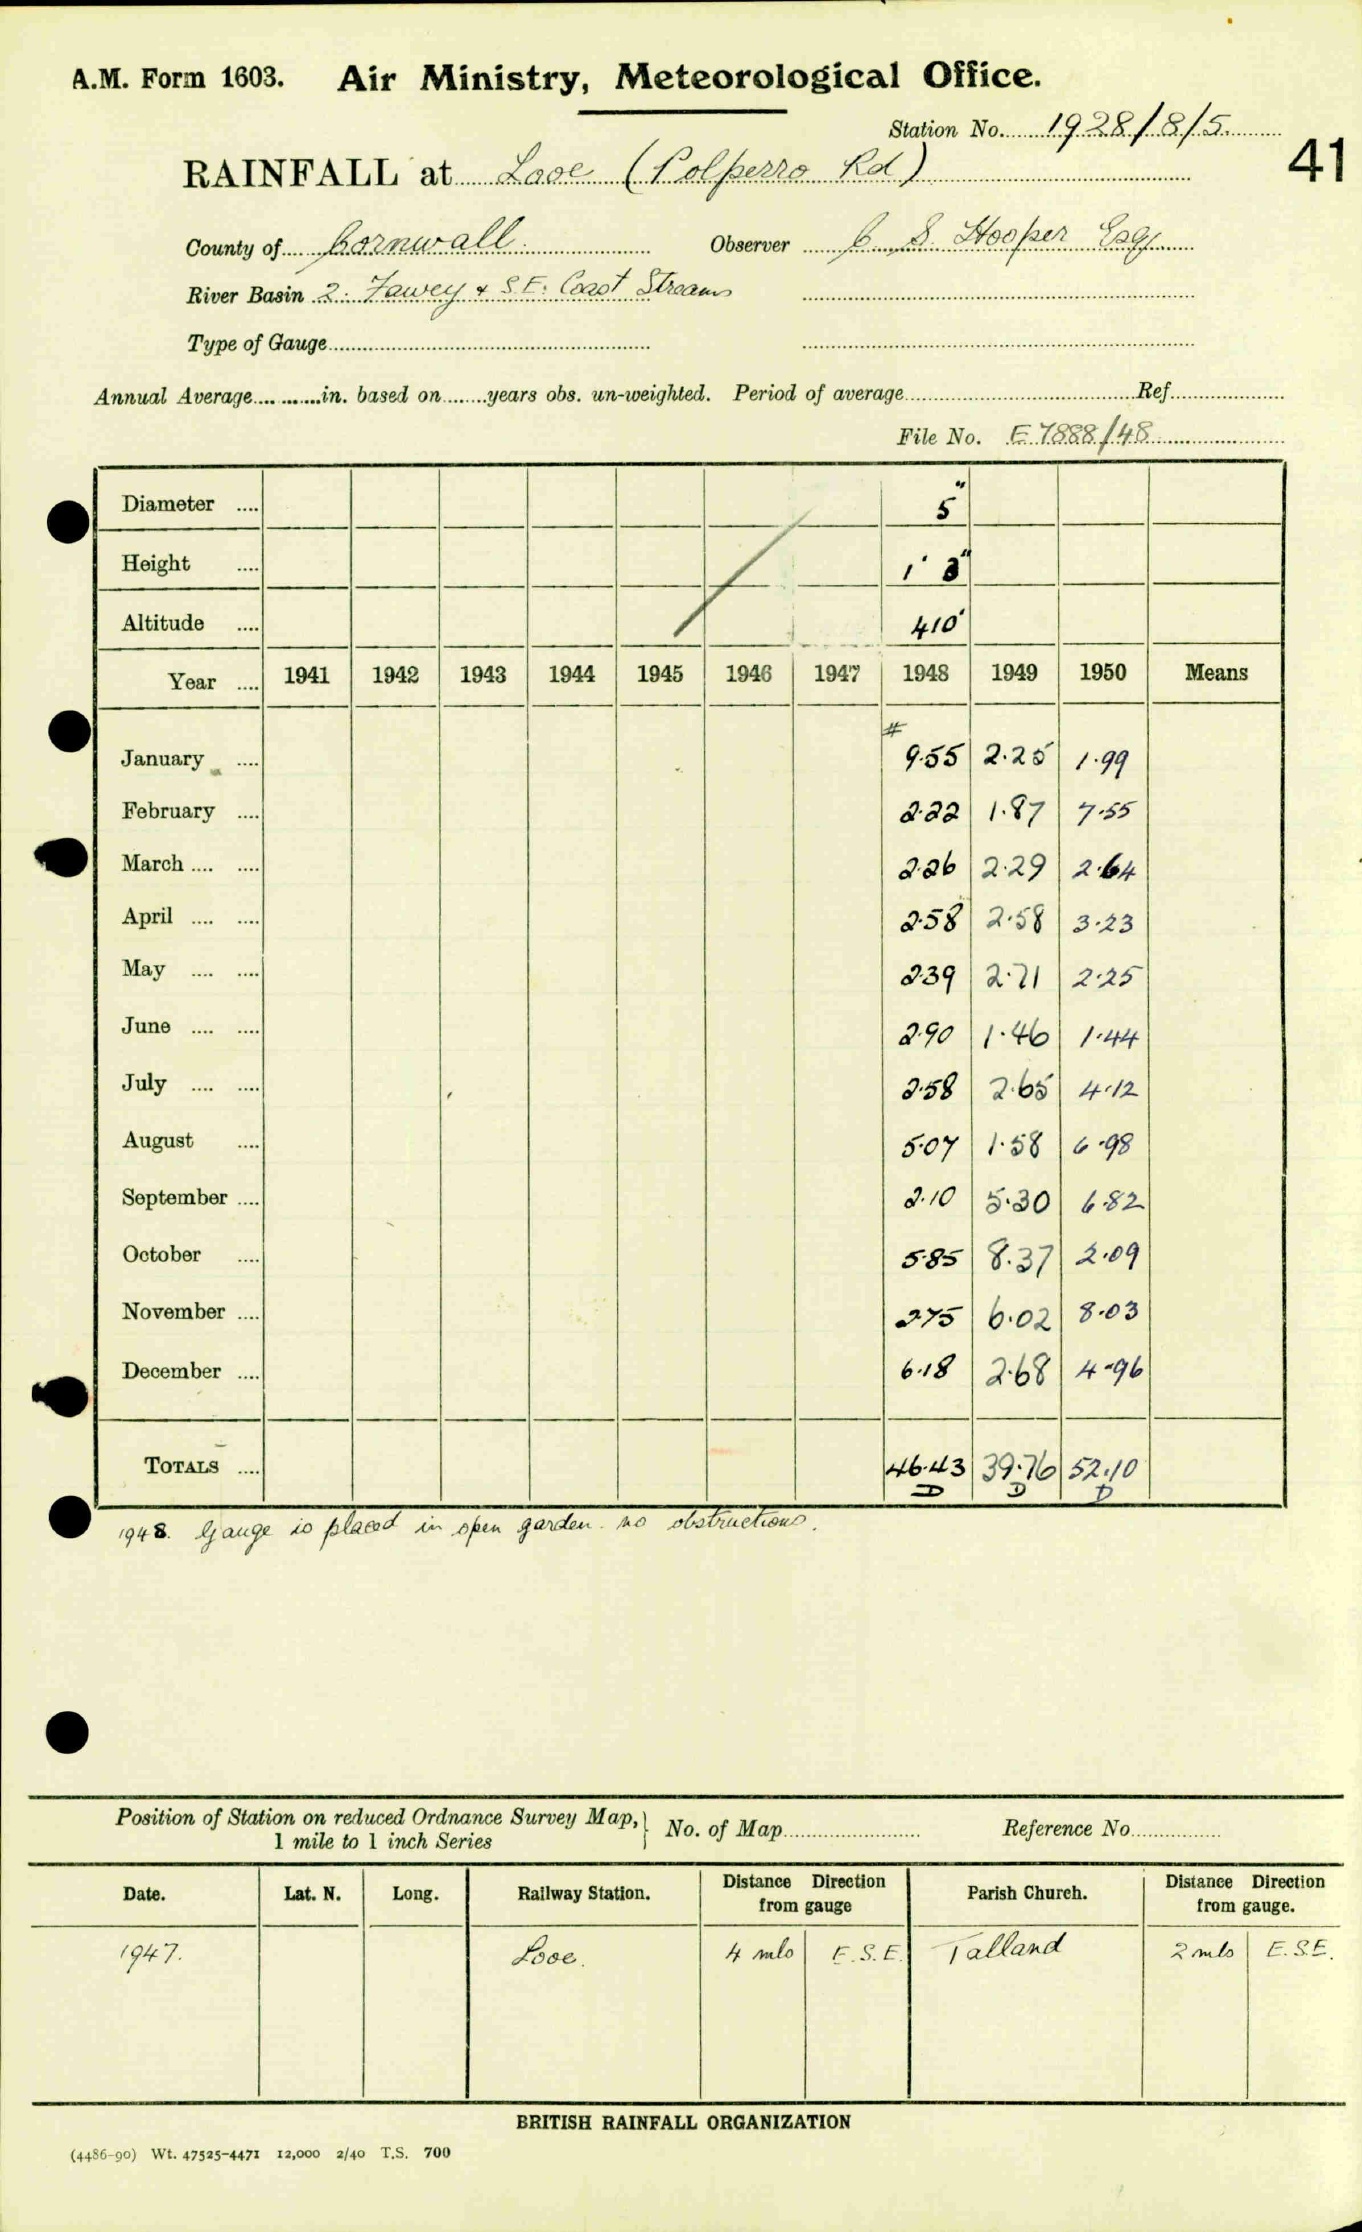 A.M. Form 1603. Air Ministry, Meteorological Office.
Station No. 1928/8/5
41
RAINFALL at Looe (Polperro Rd)
County of Cornwall Observer C S Hooper Esq
River Basin 2. Fowey & S.E. Coast Streams
Type of Gauge
Annual Average in. based on years obs. un-weighted. Period of average Ref
File No. E 7888/48
Diameter 5"
Height 1' 3"
Altitude 410'
Year 1941 1942 1943 1944 1945 1946 1947 1948 1949 1950 Means
#
January 9.55 2.25 1.99
February 2.22 1.87 7.55
March 2.26 2.29 2.64
April 2.58 2.58 3.23
May 2.39 2.71 2.25
June 2.90 1.46 1.44
July 2.58 2.65 4.12
August 5.07 1.58 6.98
September 2.10 5.30 6.82
October 5.85 8.37 2.09
November 2.75 6.02 8.03
December 6.18 2.68 4.96
TOTALS 46.43 39.76 52.10
D D D
1948. Gauge is placed in open garden. no obstructions.
Position of Station on reduced Ordnance Survey Map, No. of Map Reference No.
1 mile to 1 inch Series
Date. Lat. N. Long. Railway Station. Distance Direction from gauge Parish Church. Distance Direction from gauge.
1947. Looe. 4 mls E.S.E. Talland 2 mls E.S.E.
BRITISH RAINFALL ORGANIZATION
(4486-90) Wt. 47525-4471 12,000 2/40 T.S. 700